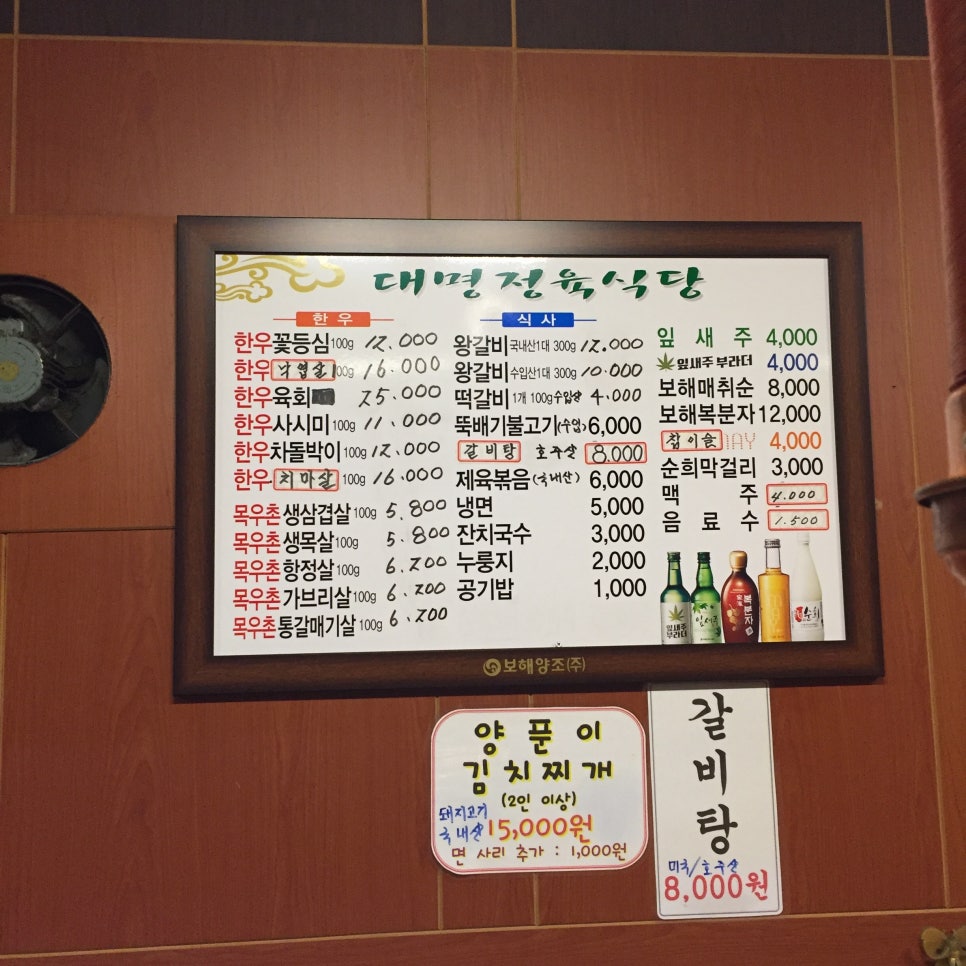 대명정육식당
한우
한우꽃등심100g 12.000
한우낙엽살100g 16.000
한우육회 25.000
한우사시미100g 11.000
한우차돌박이100g 12.000
한우치마살100g 16.000
목우촌생삼겹살100g 5.800
목우촌생목살100g 5.800
목우촌항정살100g 6.200
목우촌가브리살100g 6.200
목우촌통갈매기살100g 6.200
식사
왕갈비국내산1대 300g 12.000
왕갈비수입산1대 300g 10.000
떡갈비1개 100g수입산 4.000
뚝배기불고기(수입) 6,000
갈비탕 호주산 8,000
제육볶음(국내산) 6,000
냉면 5,000
잔치국수 3,000
누룽지 2,000
공기밥 1,000
잎새주 4,000
잎새주 부라더 4,000
보해매취순 8,000
보해복분자 12,000
참이슬 4,000
순희막걸리 3,000
맥주 4.000
음료수 1.500
잎새주
부라더
잎새주
복분자
순희
보해양조(주)
양푼이
김치찌개
(2인 이상)
돼지고기
국내산 15,000원
면 사리 추가 : 1,000원
갈비탕
미국/호주산
8,000원